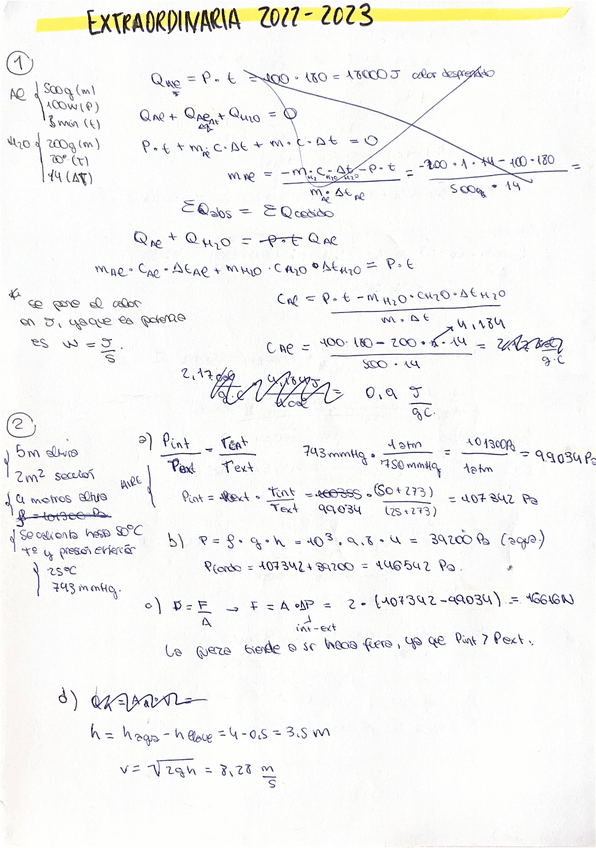 EXTRAORDINARIA 2022-2023
1
Al 500g (m)
100W (P)
3 min (t)
H2O 200g (m)
20° (T)
14 (ΔT)
Q = P · t = 100 · 180 = 18000 J calor desprendido
QAl + QAl + QH2O = 0
P · t + mAl · C · Δt + m · C · Δt = 0
mAl = -m · C · Δt - P · t / m · ΔtAl = -200 · 1 · 14 - 100 · 180 / 500g · 14 =
ΣQabs = ΣQcedido
QAl + QH2O = P · t QAl
mAl · CAl · ΔtAl + mH2O · CH2O · ΔtH2O = P · t
* se pone el calor
en J, ya que es potencia
es W = J/s.
CAl = P · t - mH2O · CH2O · ΔtH2O / m · Δt
CAl = 100 · 180 - 200 · 4,184 · 14 / 500 · 14 =
= 0,9 J/gC.
2
5m altura
2m² sección
4 metros altura
Se calienta hasta 50°C
Tª y presión exterior
25°C
743 mmHg.
a) Pint/Pext = Tint/Text
743 mmHg · 1 atm/750 mmHg = 101300Pa/1 atm = 99034 Pa
AIRE Pint = Pext · Tint/Text = 99034 · (50+273)/(25+273) = 107342 Pa
b) P = ρ · g · h = 10³ · 9,8 · 4 = 39200 Pa (agua)
Pfondo = 107342 + 39200 = 146542 Pa.
c) P = F/A → F = A · ΔP = 2 · (107342 - 99034) = 16616 N
int-ext
La fuerza tiende a ir hacia fuera, ya que Pint > Pext.
d)
h = hagua - hllave = 4 - 0,5 = 3,5 m
v = √2gh = 8,28 m/s